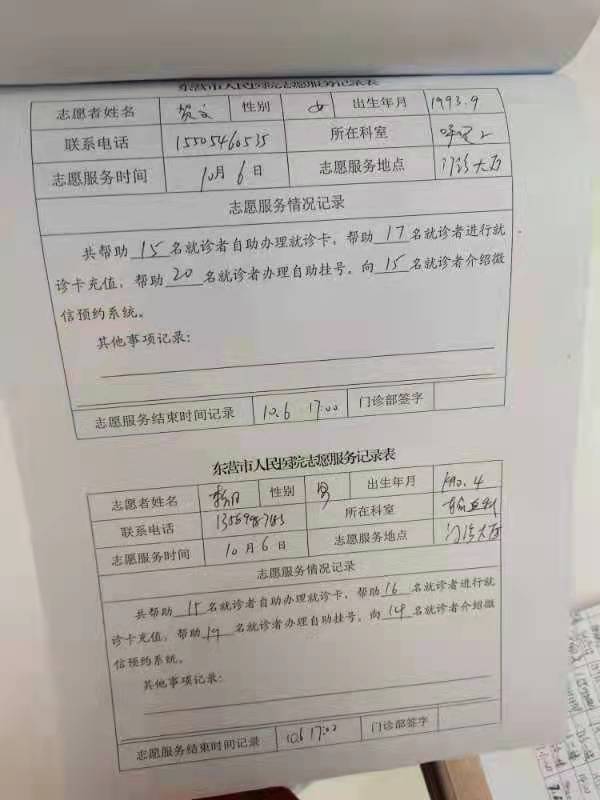 东营市人民医院志愿服务记录表
志愿者姓名 贺文 性别 女 出生年月 1993.9
联系电话 15505460535 所在科室
志愿服务时间 10月6日 志愿服务地点 门诊大厅
志愿服务情况记录
共帮助15名就诊者自助办理就诊卡，帮助17名就诊者进行就
诊卡充值，帮助20名就诊者办理自助挂号，向15名就诊者介绍微
信预约系统。
其他事项记录：
志愿服务结束时间记录 10.6 17:00 门诊部签字
东营市人民医院志愿服务记录表
志愿者姓名 性别 男 出生年月 1990.4
联系电话 所在科室
志愿服务时间 10月6日 志愿服务地点 门诊大厅
志愿服务情况记录
共帮助15名就诊者自助办理就诊卡，帮助16名就诊者进行就
诊卡充值，帮助名就诊者办理自助挂号，向14名就诊者介绍微
信预约系统。
其他事项记录：
志愿服务结束时间记录 10.6 17:00 门诊部签字